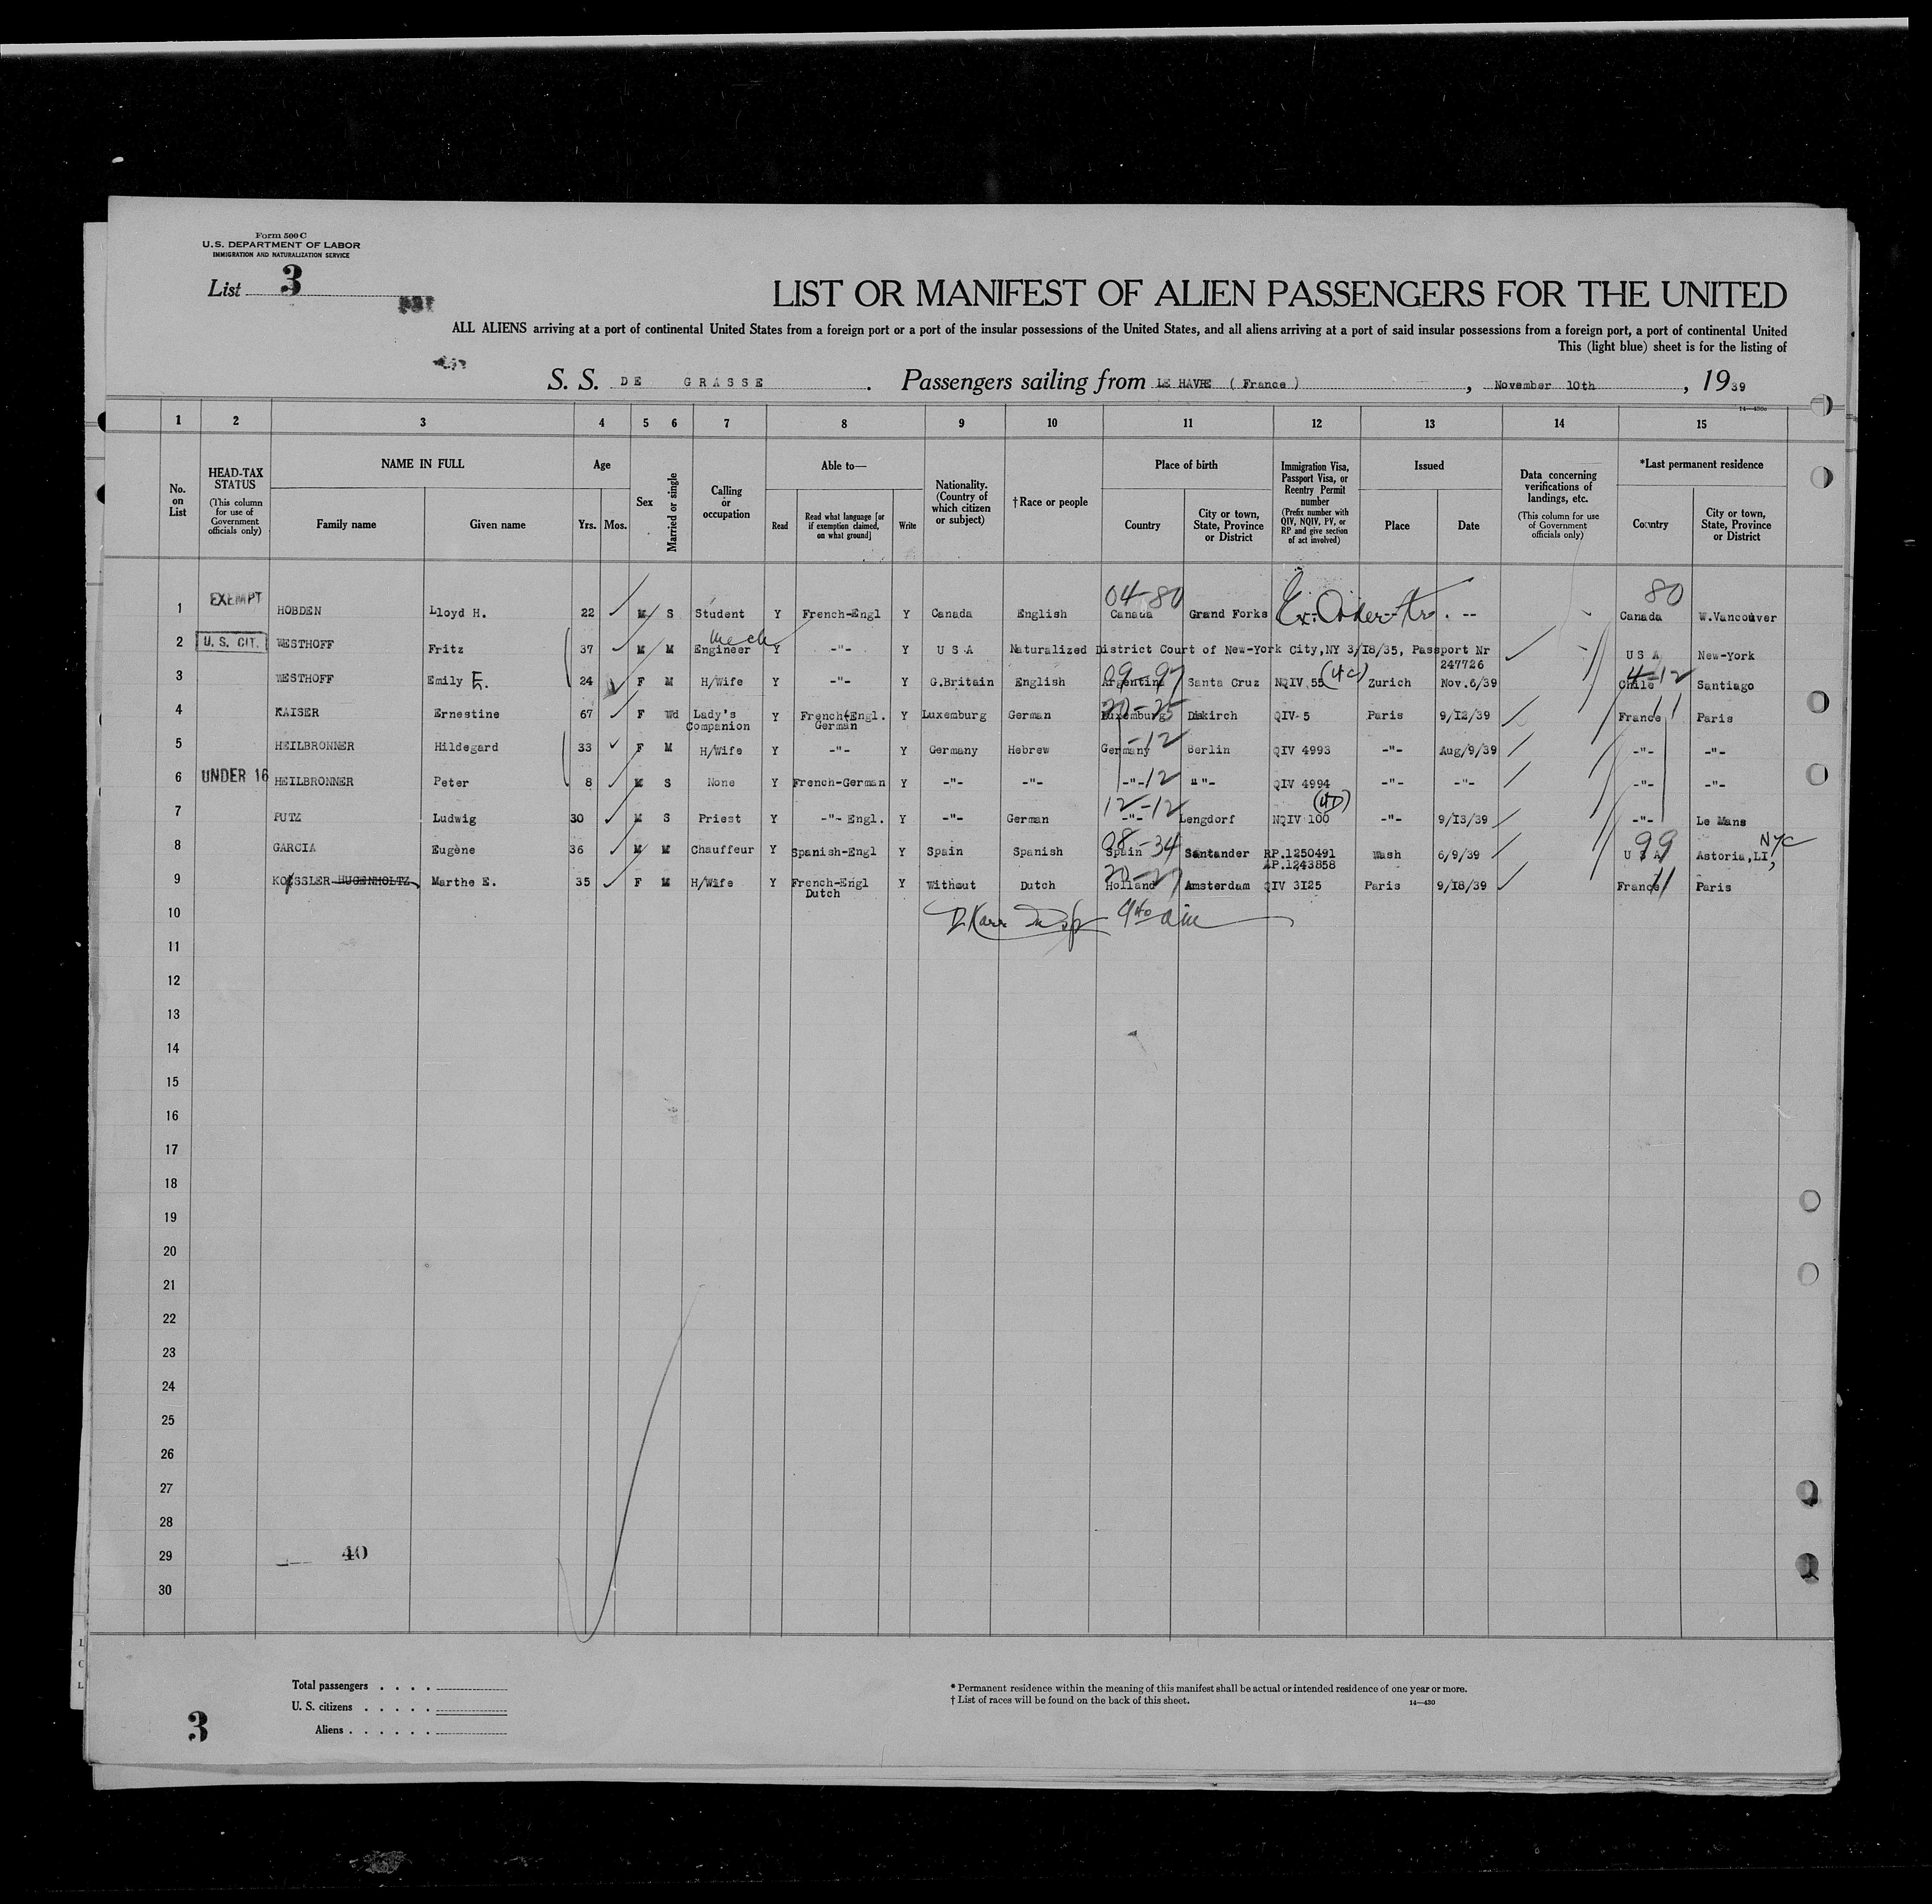 Form 500 C
U.S. DEPARTMENT OF LABOR
IMMIGRATION AND NATURALIZATION SERVICE
List 3
LIST OR MANIFEST OF ALIEN PASSENGERS FOR THE UNITED
ALL ALIENS arriving at a port of continental United States from a foreign port or a port of the insular possessions of the United States, and all aliens arriving at a port of said insular possessions from a foreign port, a port of continental United
This (light blue) sheet is for the listing of
S. S. DE GRASSE . Passengers sailing from LE HAVRE ( France ) , November 10th , 19 39
14—430c
1 2 3 4 5 6 7 8 9 10 11 12 13 14 15
No. on List
HEAD-TAX STATUS (This column for use of Government officials only)
NAME IN FULL Family name Given name
Age Yrs. Mos.
Sex
Married or single
Calling or occupation
Able to— Read Read what language [or if exemption claimed, on what ground] Write
Nationality. (Country of which citizen or subject)
†Race or people
Place of birth Country City or town, State, Province or District
Immigration Visa, Passport Visa, or Reentry Permit number (Prefix number with QIV, NQIV, PV, or RP and give section of act involved)
Issued Place Date
Data concerning verifications of landings, etc. (This column for use of Government officials only)
*Last permanent residence Country City or town, State, Province or District
EXEMPT 04-80 80
1 HOBDEN Lloyd H. 22 M S Student Y French-Engl Y Canada English Canada Grand Forks -- Canada W.Vancouver
Mech
2 U. S. CIT. WESTHOFF Fritz 37 M M Engineer Y -"- Y U S A Naturalized District Court of New-York City,NY 3/18/35, Passport Nr 247726 U S A New-York
09-97 (4C) 4-12
3 WESTHOFF Emily E. 24 F M H/Wife Y -"- Y G.Britain English Argentina Santa Cruz NQIV 55 Zurich Nov.6/39 Chile Santiago
20-25 11
4 KAISER Ernestine 67 F Wd Lady's Companion Y French-Engl. German Y Luxemburg German Luxemburg Diekirch QIV 5 Paris 9/12/39 France Paris
-12
5 HEILBRONNER Hildegard 33 F M H/Wife Y -"- Y Germany Hebrew Germany Berlin QIV 4993 -"- Aug/9/39 -"- -"-
-12
6 UNDER 16 HEILBRONNER Peter 8 M S None Y French-German Y -"- -"- -"- "- QIV 4994 -"- -"- -"- -"-
12-12 (4D)
7 PUTZ Ludwig 30 M S Priest Y -"- Engl. Y -"- German -"- Lengdorf NQIV 100 -"- 9/13/39 -"- Le Mans
08-34 99 NYC
8 GARCIA Eugène 36 M M Chauffeur Y Spanish-Engl Y Spain Spanish Spain Santander RP.1250491 AP.1243858 Wash 6/9/39 U S A Astoria,LI,
20-27 11
9 KOESSLER HUGENHOLTZ Marthe E. 35 F M H/Wife Y French-Engl Dutch Y Without Dutch Holland Amsterdam QIV 3125 Paris 9/18/39 France Paris
10 D. Karr Insp 9 40 am
11
12
13
14
15
16
17
18
19
20
21
22
23
24
25
26
27
28
29 40
30
Total passengers . . . .
U. S. citizens . . . . .
Aliens . . . . . .
* Permanent residence within the meaning of this manifest shall be actual or intended residence of one year or more.
† List of races will be found on the back of this sheet.
14—430
3